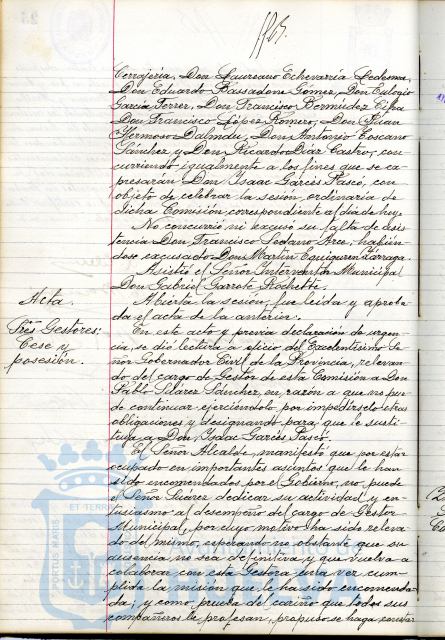 Cerrajería, Don Laureano Echevarría Ledesma,
Don Eduardo Bassadone Gómez, Don Eulogio
García Ferrer, Don Francisco Bermúdez
Don Francisco López Romero, Don Juan
Hermoso Dalmau, Don Antonio Toscano
Sánchez y Don Ricardo Díaz Castro, con
curriendo igualmente a los fines que se ex
presarán Don Isaac Garcés Pascó, con
objeto de celebrar la sesión ordinaria de
dicha Comisión correspondiente al día de hoy.
No concurrió ni excusó su falta de asis
tencia Don Francisco Sedano Arce, habién
dose excusado Don Martín Eguiguren Lárraga.
Asistió el Señor Interventor Municipal
Don Gabriel Garrote Rochette.
Acta.
Abierta la sesión, fué leída y aproba
da el acta de la anterior.
Tres Gestores:
Cese y
posesión.
En este acto y previa declaración de urgen
cia, se dió lectura a oficio del Excelentísimo Se
ñor Gobernador Civil de la Provincia, relevan
do del cargo de Gestor de esta Comisión a Don
Pablo Suárez Sánchez, en razón a que no pue
de continuar ejerciéndolo por impedírselo otras
obligaciones y designando para que le susti
tuya a Don Isaac Garcés Pascó.
El Señor Alcalde, manifestó que por estar
ocupado en importantes asuntos que le han
sido encomendados por el Gobierno, no puede
el Señor Suárez dedicar su actividad y en
tusiasmo al desempeño del cargo de Gestor
Municipal, por cuyo motivo ha sido releva
do del mismo, esperando no obstante que su
ausencia no sea definitiva y que vuelva a
colaborar con esta Gestora una vez cum
plida la misión que le ha sido encomenda
da; y como prueba del cariño que todos sus
compañeros le profesan, propuso se haga constar
PORTUS GADITANUS
ET TERRA